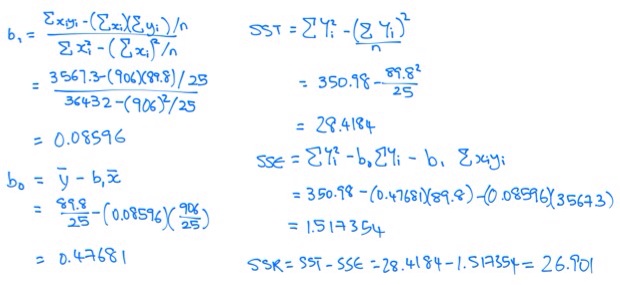 b₁ = Σxiyi-(Σxi)(Σyi)/n / Σxi²-(Σxi)²/n
= 3567.3-(906)(89.8)/25 / 36432-(906)²/25
= 0.08596
b₀ = ȳ - b₁x̄
= 89.8/25 - (0.08596)(906/25)
= 0.47681
SST = ΣYi² - (ΣYi)²/n
= 350.98 - 89.8²/25
= 28.4184
SSE = ΣYi² - b₀ΣYi - b₁ Σxiyi
= 350.98 - (0.47681)(89.8) - (0.08596)(3567.3)
= 1.517354
SSR = SST - SSE = 28.4184 - 1.517354 = 26.901